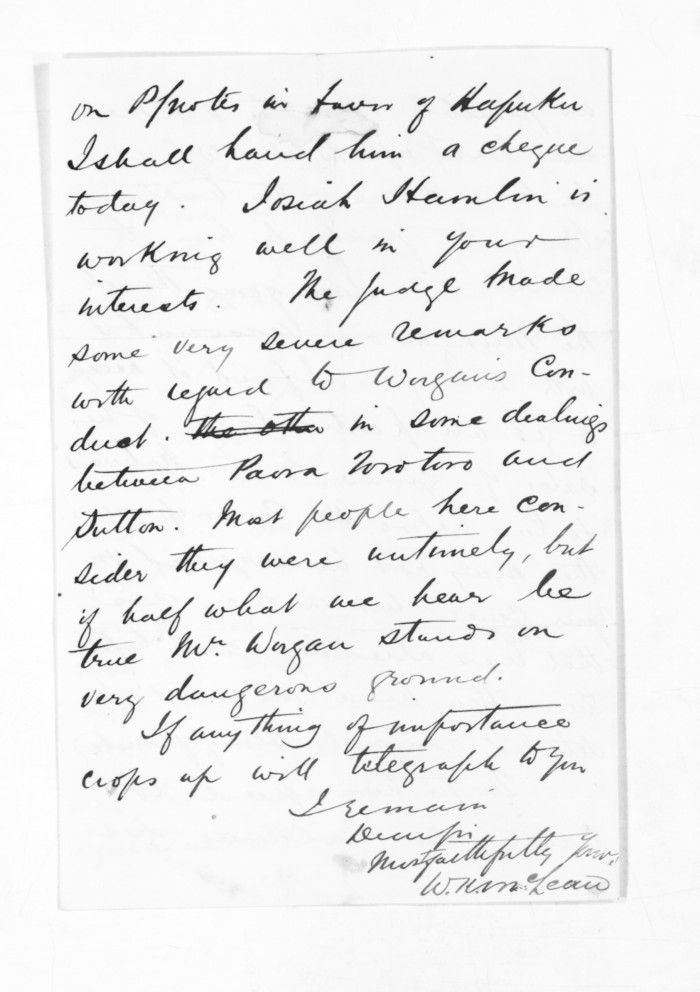 on P/notes in favor of Hapuku
I shall hand him a cheque
today. Josiah Hamlin is
working well in your
interests. The judge made
some very severe remarks
with regard to Worgan's Con-
duct. the othe in some dealings
between Paora Torotoro and
Sutton. Most people here con-
sider they were untimely, but
if half what we hear be
true Mr. Worgan stands on
very dangerous ground.
If anything of importance
crops up will telegraph to you
I remain
Dear Sir
Most faithfully Yours
W.H. McLean